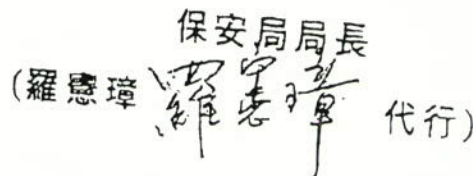 保安局局長
(羅憲璋 羅憲璋 代行)